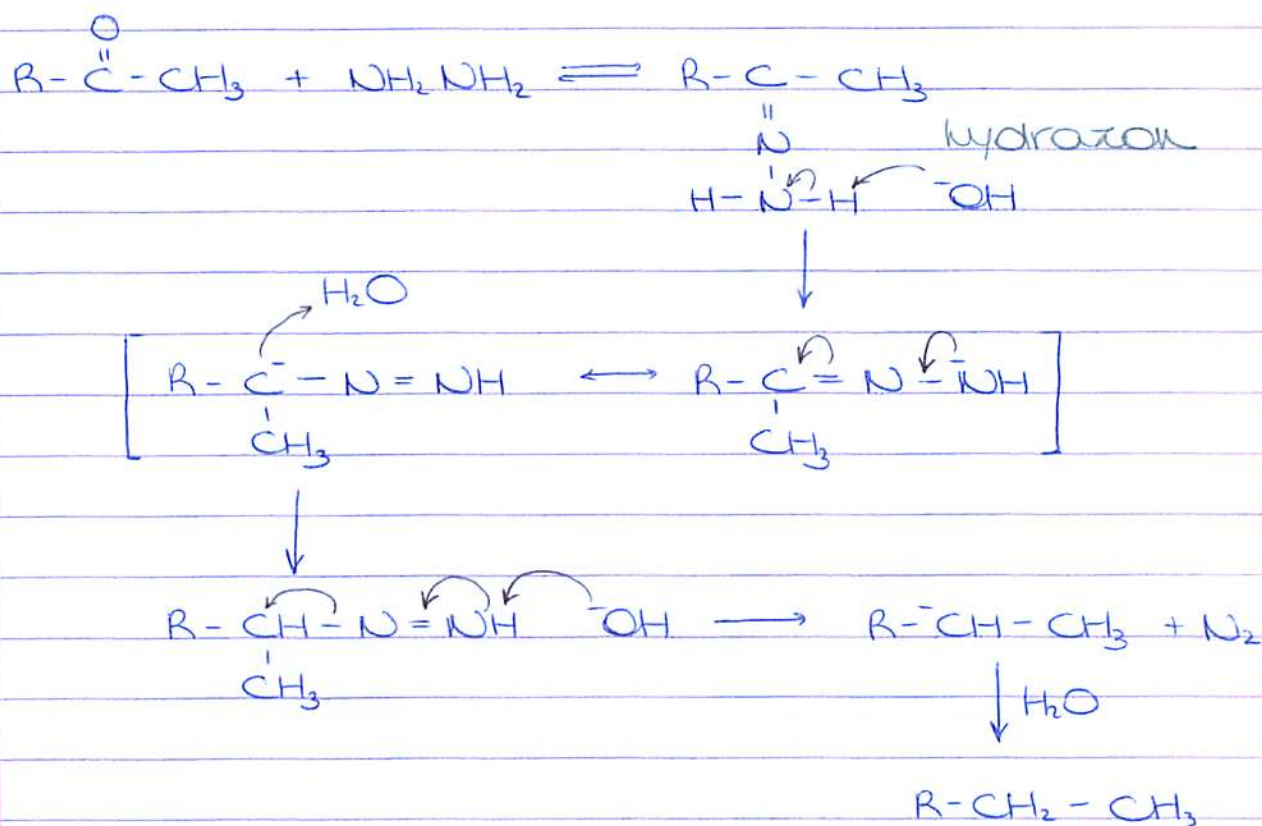 O
R - C - CH₃ + NH₂NH₂ ⇌ R - C - CH₃
N hydrazon
H - N - H ⁻OH
H₂O
[ R - C⁻ - N = NH ↔ R - C = N - N⁻H ]
CH₃ CH₃
R - CH - N = NH ⁻OH → R - ⁻CH - CH₃ + N₂
CH₃
H₂O
R - CH₂ - CH₃